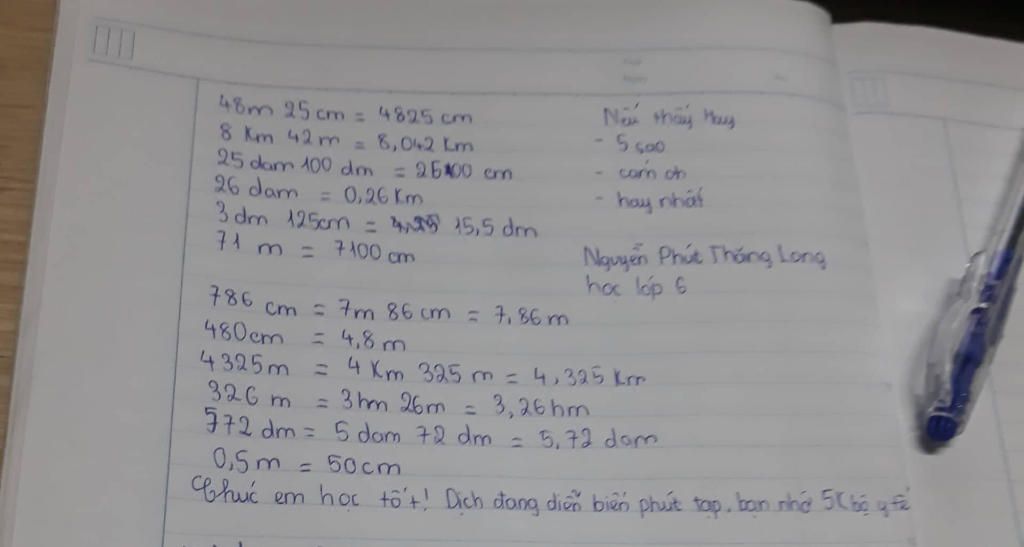 48m 25cm = 4825 cm
8 Km 42m = 8,042 Km
25 dam 100 dm = 26000 cm
26 dam = 0,26 Km
3 dm 125cm = 15,5 dm
71 m = 7100 cm
Nếu thấy hay
- 5 sao
- cám ơn
- hay nhất
Nguyễn Phút Thăng Long
học lớp 6
786 cm = 7m 86 cm = 7,86 m
480cm = 4,8 m
4325m = 4 Km 325 m = 4,325 Km
326 m = 3hm 26m = 3,26 hm
572 dm = 5 dam 72 dm = 5,72 dam
0,5m = 50cm
Chúc em học tốt! Dịch đang diễn biến phút tạp, bạn nhớ 5K bộ y tế